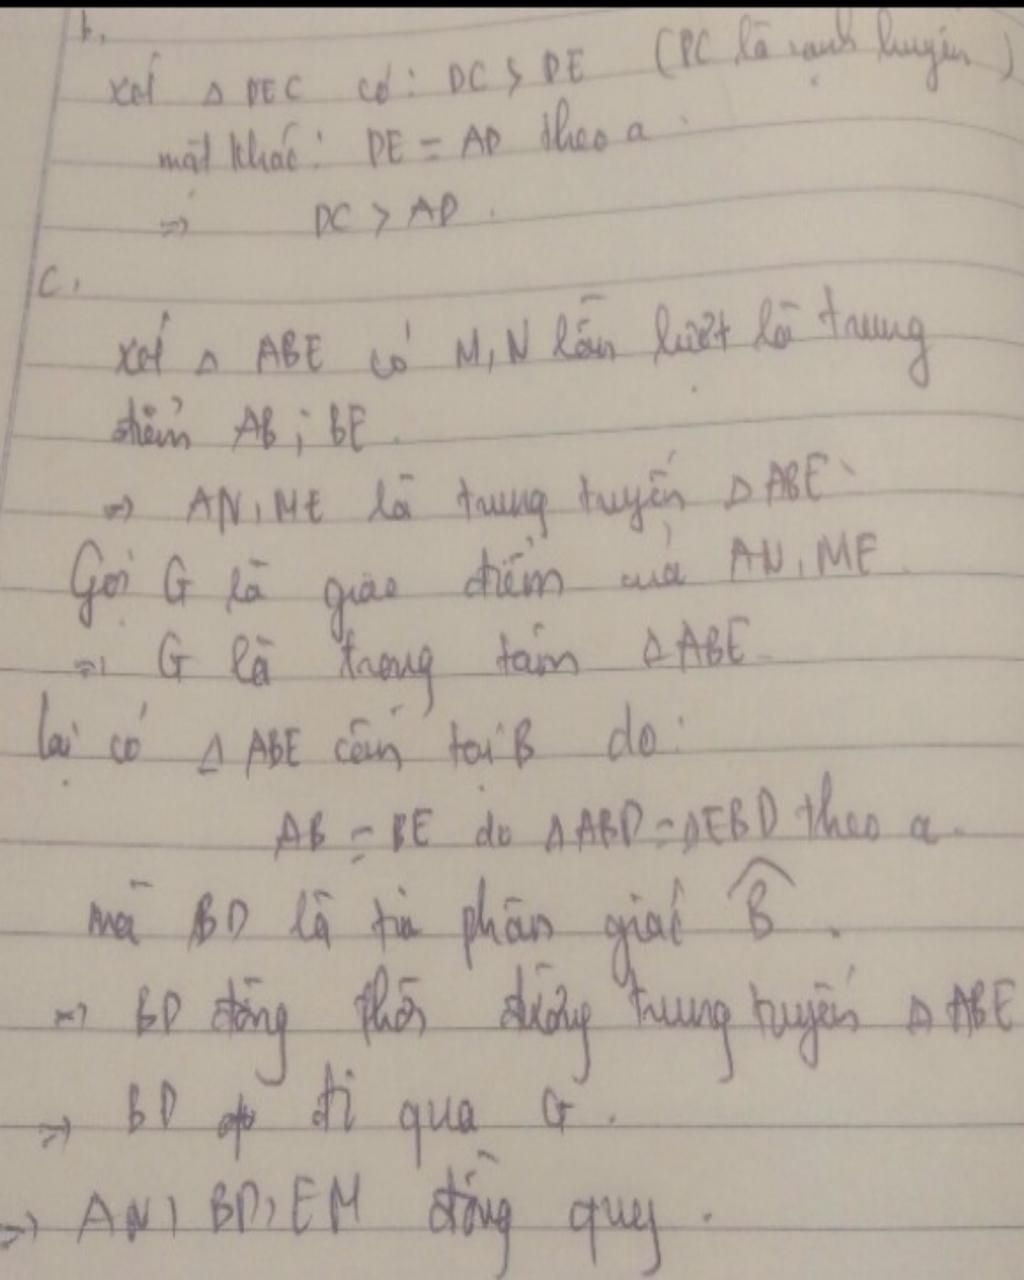 b,
xét Δ DEC có: DC > DE (DC là cạnh huyền)
mặt khác: DE = AD theo a.
=> DC > AD.
C,
xét Δ ABE có M, N lần lượt là trung
điểm AB; BE.
=> AN, ME là trung tuyến Δ ABE
Gọi G là giao điểm của AN, ME.
=> G là trọng tâm Δ ABE
lại có Δ ABE cân tại B do:
AB = BE do ΔABD = ΔEBD theo a.
mà BD là tia phân giác B̂.
=> BD đồng thời đường trung tuyến Δ ABE
=> BD đi qua G.
=> AN, BD, EM đồng quy.